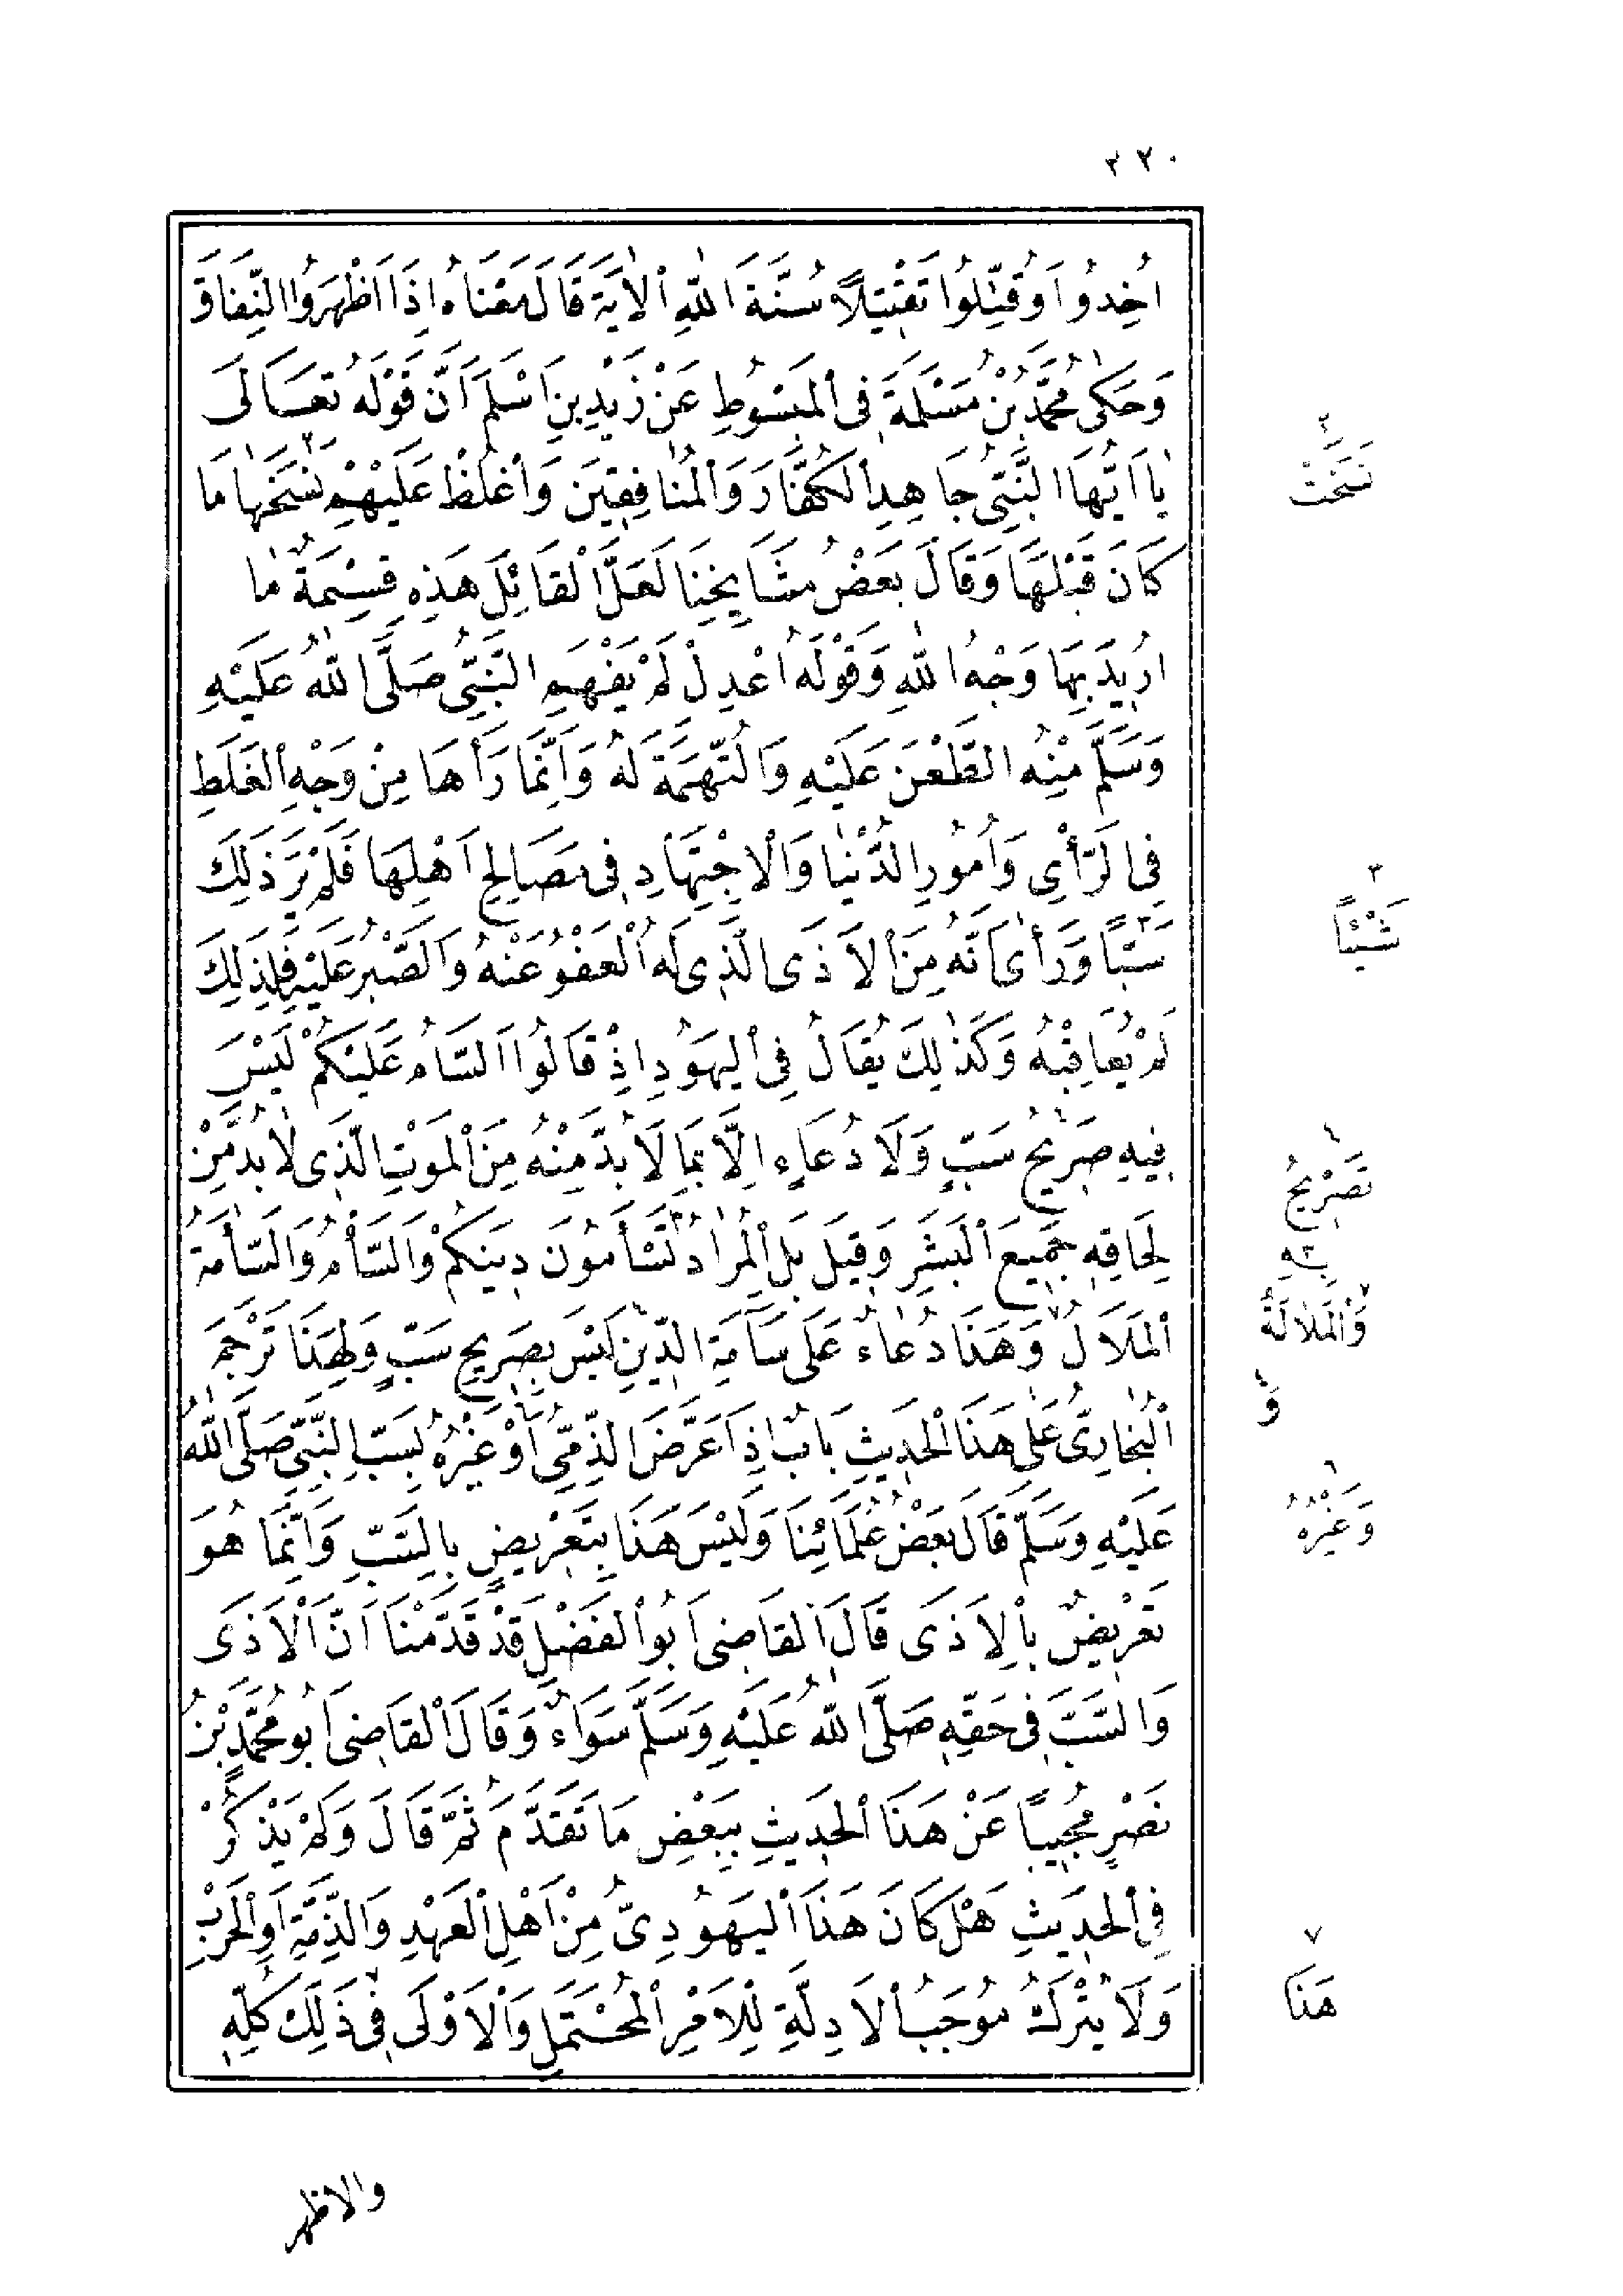 ٢٢٠
اُخِذُوا وَقُتِّلُوا تَقْتِيلًا سُنَّةَ اللّٰهِ الْاٰيَةَ قَالَ مَعْنَاهُ اِذَا اَظْهَرُوا النِّفَاقَ
وَحَكٰى مُحَمَّدُ بْنُ مَسْلَمَةَ فِى الْمَبْسُوطِ عَنْ زَيْدِ بْنِ اَسْلَمَ اَنَّ قَوْلَهُ تَعَالَى
يٰا اَيُّهَا النَّبِىُّ جَاهِدِ الْكُفَّارَ وَالْمُنَافِقِينَ وَاغْلُظْ عَلَيْهِمْ نَسَخَهٰا مَا
كَانَ قَبْلَهَا وَقَالَ بَعْضُ مَشَايِخِنَا لَعَلَّ الْقَائِلَ هَذِهِ قِسْمَةٌ مٰا
اُرِيدَ بِهَا وَجْهُ اللّٰهِ وَقَوْلَهُ اعْدِلْ لَمْ يَفْهَمِ النَّبِىُّ صَلَّى اللّٰهُ عَلَيْهِ
وَسَلَّمَ مِنْهُ الطَّعْنَ عَلَيْهِ وَالتُّهَمَةَ لَهُ وَاِنَّمَا رَأَهَا مِنْ وَجْهِ الْغَلَطِ
فِى الرَّأْىِ وَاُمُورِ الدُّنْيٰا وَالْاِجْتِهَادِ فِى مَصَالِحِ اَهْلِهَا فَلَمْ يَرَ ذَلِكَ
سَبًّا وَرَأٰى اَنَّهُ مِنَ الْاَذَى الَّذِى لَهُ الْعَفْوُ عَنْهُ وَالصَّبْرُ عَلَيْهِ فَلِذَلِكَ
لَمْ يُعَاقِبْهُ وَكَذٰلِكَ يُقَالُ فِى الْيَهُودِ اِذْ قَالُوا اَلسَّامُ عَلَيْكُمْ لَيْسَ
فِيهِ صَرِيحُ سَبٍّ وَلَا دُعَاءٍ اِلَّا بِمَا لَا بُدَّ مِنْهُ مِنَ الْمَوْتِ الَّذِى لٰا بُدَّ مِنْ
لِحَاقِهِ جَمِيعَ الْبَشَرِ وَقِيلَ بَلِ الْمُرَادُ تَسْأَمُونَ دِينَكُمْ وَالسَّأْمُ وَالسَّأْمَةُ
اَلْمَلَالُ وَهَذَا دُعٰاءٌ عَلَى سَآمَةِ الدِّينِ لَيْسَ بِصَرِيحِ سَبٍّ وَلِهَذَا تَرْجَمَ
الْبُخٰارِىُّ عَلٰى هَذَا الْحَدِيثِ بَابٌ اِذَا عَرَّضَ الذِّمِّىُّ اَوْ غَيْرُهُ بِسَبِّ النَّبِىِّ صَلَّى اللّٰهُ
عَلَيْهِ وَسَلَّمَ قَالَ بَعْضُ عُلَمَائِنَا وَلَيْسَ هَذَا بِتَعْرِيضٍ بِالسَّبِّ وَاِنَّمَا هُوَ
تَعْرِيضٌ بِالْاَذَى قَالَ الْقَاضِى اَبُو الْفَضْلِ قَدْ قَدَّمْنَا اَنَّ الْاَذَى
وَالسَّبَّ فِى حَقِّهِ صَلَّى اللّٰهُ عَلَيْهِ وَسَلَّمَ سَوَاءٌ وَقَالَ الْقَاضِى اَبُو مُحَمَّدِ بْنُ
نَصْرٍ مُجِيبًا عَنْ هَذَا الْحَدِيثِ بِبَعْضِ مَا تَقَدَّمَ ثُمَّ قَالَ وَلَمْ يَذْكُرْ
فِى الْحَدِيثِ هَلْ كَانَ هَذَا الْيَهُودِىُّ مِنْ اَهْلِ الْعَهْدِ وَالذِّمَّةِ اَوِ الْحَرْبِ
وَلَا يُتْرَكُ مُوجَبُ الْاَدِلَّةِ لِلْاَمْرِ الْمُحْتَمَلِ وَالْاَوْلَى فِى ذَلِكَ كُلِّهِ
نَسَخَتْ
٣
شَيْئًا
تَصْرِيحُ
بِهِ
وَالْمَلٰالَةُ
وَ
وَغَيْرُهُ
٧
هَذَا
والاظهر